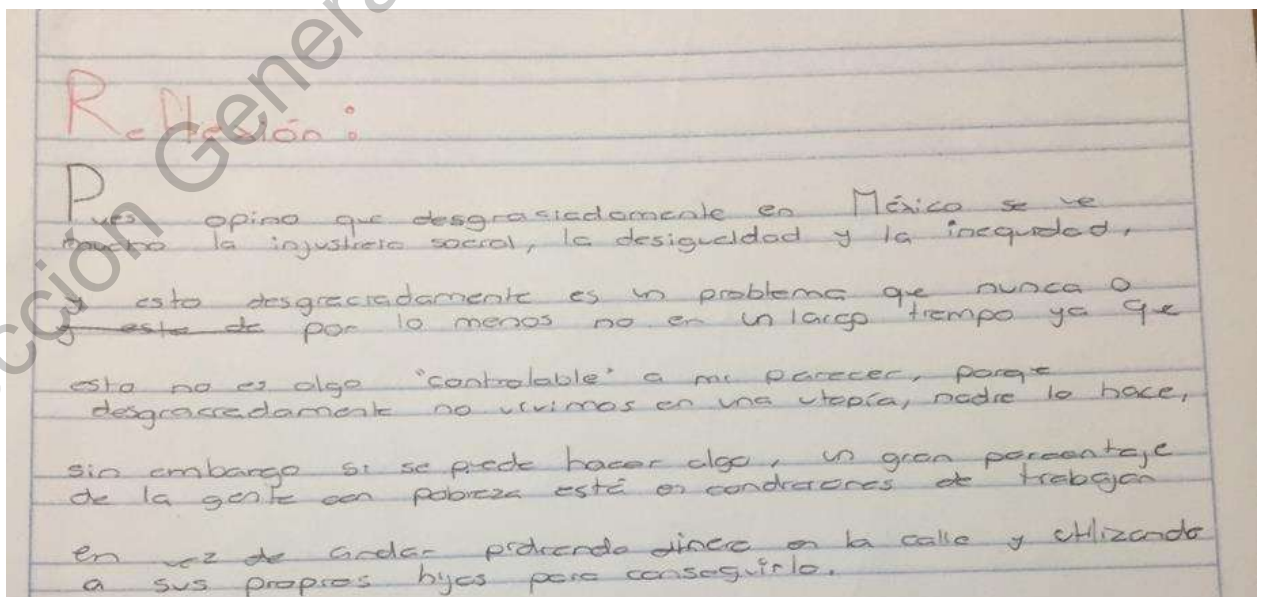 Reflexión:
Pues opino que desgrasiadamente en México se ve
mucho la injusticia social, la desigualdad y la inequidad,
y esto desgraciadamente es un problema que nunca o
y este de por lo menos no en un largo tiempo ya que
esto no es algo "controlable" a mi parecer, porque
desgraciadamente no vivimos en una utopía, nadie lo hace,
sin embargo si se puede hacer algo, un gran porcentaje
de la gente con pobreza está en condiciones de trabajar
en vez de andar pidiendo dinero en la calle y utilizando
a sus propios hijos para conseguirlo.
cción Genera